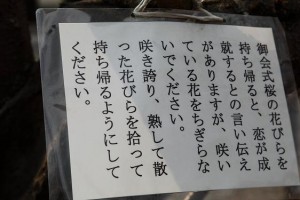 御会式桜の花びらを
持ち帰ると、恋が成
就するとの言い伝え
がありますが、咲い
ている花をちぎらな
いでください。
咲き誇り、熟して散
った花びらを拾って
持ち帰るようにして
ください。